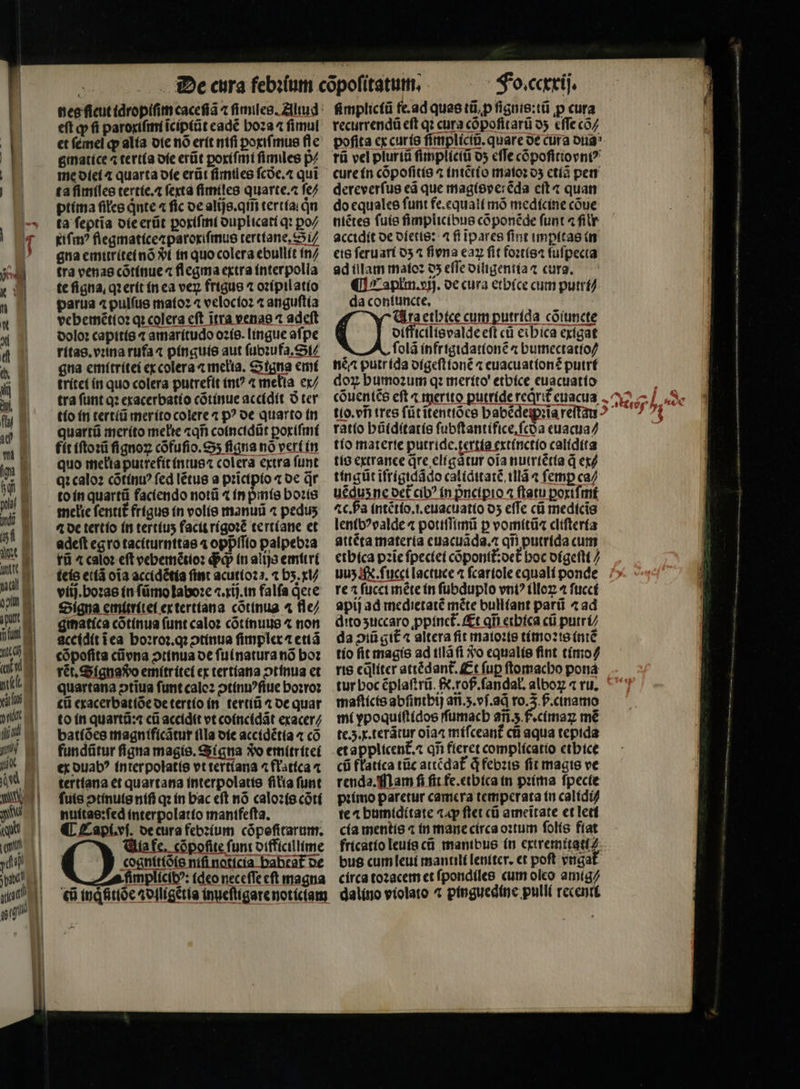 De cura febꝛium cõpoſitatum. Fo.ccxxij.
nes ſicut idropiſim caceſiã ⁊ ſimiles. Aliud
eſt ꝙ ſi paroxiſmi ĩcipiũt eadẽ hoꝛa ⁊ ſimul
et ſemel ꝙ alia die nõ erit niſi poxiſmus fle
gmatice ⁊ tertia die erũt poxiſmi ſimiles p̃/
me diei ⁊ quarta die erũt ſimiles ſcde. ⁊ qui
ta ſimiles tertie. ⁊ ſexta ſimiles quarte. ⁊ ſe/
ptima ſiles qñte ⁊ ſic de alijs. qm̃ tertia: qñ
ta ſeptĩa die erũt poxiſmi duplicati qꝛ po/
xiſmꝰ flegmatice ⁊ paroxiſmus tertiane. Si/
gna emitritei nõ ꝟi in quo colera ebullit in/
tra venas cõtinue ⁊ flegma extra interpolla
te ſigna, qꝛ erit in ea veꝝ frigus ⁊ oꝛipilatio
parua ⁊ pulſus maioꝛ ⁊ velocioꝛ ⁊ anguſtia
vehemẽtioꝛ qꝛ colera eſt ĩtra venas ⁊ adeſt
doloꝛ capitis ⁊ amaritudo oꝛis. lingue aſpe
ritas. vꝛina rufa ⁊ pinguis aut ſubꝛufa. Si/
gna emitritei ex colera ⁊ melīa. Signa emi
tritei in quo colera putrefit intꝰ ⁊ melīa ex/
tra ſunt qꝛ exacerbatio cõtinue accidit ð ter
tio in tertiũ merito colere ⁊ pꝰ de quarto in
quartũ merito melīe ⁊ qñ coincidũt poxiſmi
fit iſtoꝛũ ſignoꝝ cõfuſio. Sꝫ ſigna nõ veri in
quo melīa putrefit intus ⁊ colera extra ſunt
qꝛ caloꝛ cõtinuꝰ ſed lẽtus a pꝛĩcipio ⁊ de q̃r
to in quartũ faciendo notũ ⁊ in p̃mis hoꝛis
melīe ſentit̃ frigus in volis manuũ ⁊ peduꝫ
⁊ de tertio in tertiuꝫ facit rigoꝛẽ tertiane et
adeſt egro taciturnitas ⁊ opp̃ſſio palpebꝛa
rũ ⁊ caloꝛ eſt vehemẽtioꝛ ꝙ̃ꝙ in alijs emitri
teis etiã oĩa accidẽtia ſint acutioꝛa. ⁊ hꝫ. xl/
viij. hoꝛas in ſũmo laboꝛe ⁊ .xij. in falſa q̃ete
Signa emitritei ex tertiana cõtinua ⁊ fle/
gmatica cõtinua ſunt caloꝛ cõtinuus ⁊ non
accidit ĩ ea hoꝛroꝛ. qꝛ ↄtinua ſimplex ⁊ etiã
cõpoſita cũ vna ↄtinua de ſui natura nõ hoꝛ
rẽt. Signa ꝟo emitritei ex tertiana ↄtinua et
quartana ↄtĩua ſunt caloꝛ ↄtinuꝰ ſiue hoꝛroꝛ
cũ exacerbatiõe de tertio in tertiũ ⁊ de quar
to in quartũ: ⁊ cũ accidit vt coincidãt exacer/
batiões magnificãtur illa die accidẽtia ⁊ cõ
fundũtur ſigna magis. Signa ꝟo emitritei
ex duabꝰ interpolatis vt tertiana ⁊ flatica ⁊
tertiana et quartana interpolatis ſilīa ſunt
ſuis ↄtinuis niſi qꝛ in hac eſt nõ caloꝛis cõti
nuitas: ſed interpolatio manifeſta.
¶ Capi. vj. de cura febꝛium cõpoſitarum.
QUia fe. cõpoſite ſunt difficillime
cognitiõis niſi noticia habeat̃ de
ſimplicibꝰ: ideo neceſſe eſt magna
cũ inq̃ſitiõe ⁊ diligẽtia inueſtigare noticiam
ſimpliciũ fe. ad quas tũ p ſignis: tũ p cura
recurrendũ eſt qꝛ cura cõpoſitarũ dꝫ eſſe cõ/
poſita ex curis ſimpliciũ. quare de cura dua
rũ vel pluriũ ſimpliciũ dꝫ eſſe cõpoſitio vniꝰ
cure in cõpoſitis ⁊ intẽtio maioꝛ dꝫ etiã pen
dere verſus eã que magis verẽda eſt ⁊ quan
do equales ſunt fe. equali mõ medicine cõue
niẽtes ſuis ſimplicibus cõponẽde ſunt ⁊ ſilr
accidit de dietis: ⁊ ſi ĩpares ſint impitas in
eis ſeruari dꝫ ⁊ ſi vna eaꝝ ſit foꝛtis ⁊ ſuſpecta
ad illam maioꝛ dꝫ eſſe diligentia ⁊ cura.
¶ Caplm. vij. de cura ethice cum putri/
da coniuncte.
CUra ethice cum putrida cõiuncte
difficilis valde eſt cũ ethica exigat
ſolã infrigidationẽ ⁊ humectatio/
nẽ, ⁊ putrida digeſtionẽ ⁊ euacuationẽ putri
doꝝ humoꝛum qꝛ merito ethice euacuatio
cõueniẽs eſt ⁊ merito putride reqrit̃ euacua
tio. vñ tres ſũt ĩtentiões habẽde. pꝛĩa reſtau
ratio hũiditatis ſubſtantifice. ſcða euacua/
tio materie putride. tertia extinctio calidita
tis extrance q̃re eligãtur oĩa nutriẽtia q̃ ex/
tingũt ĩfrigidãdo caliditatẽ. illã ⁊ ſemp ca/
uẽduꝫ ne det̃ cibꝰ in pncipio ⁊ ſtatu poxiſmi
⁊c. ſ̃a intẽtio. i. euacuatio dꝫ eſſe cũ medicis
lenibꝰ valde ⁊ potiſſimũ p vomitũ ⁊ cliſteria
attẽta materia euacuãda. ⁊ qñ putrida cum
ethica pꝛĩe ſpeciei cõponit̃: det̃ hoc digeſti /
uuꝫ ℞. ſucci lactuce ⁊ ſcariole equali ponde
re ⁊ ſucci mẽte in ſubduplo vniꝰ illoꝝ ⁊ ſucci
apij ad medietatẽ mẽte bulliant parũ ⁊ ad
dito zuccaro ppinct̃. Et qñ ethica cũ putri/
da ↄiũgit̃ ⁊ altera ſit maioꝛis timoꝛis intẽ
tio ſit magis ad illã ſi ꝟo equalis ſint timo/
ris eq̃liter attẽdant̃. Et ſup ſtomacho pona
tur hoc ẽplaſtrũ. ℞. roſ̃. ſandal. alboꝝ ⁊ ru.
maſticis abſinthij añ. ʒ. vſ. aq̃ ro. ℥. ſ̃. cinamo
mi ypoquiſtidos ſſumach añ. ʒ. ſ̃. cimaꝝ mẽ
te. ʒ. x. terãtur oĩa ⁊ miſceant̃ cũ aqua tepida
et applicent̃. ⁊ qñ fieret complicatio ethice
cũ flatica tũc attẽdat̃ q̃ febꝛis ſit magis ve
renda. Nam ſi ſit fe. ethica in pꝛima ſpecie
pꝛimo paretur camera temperata in calidi/
te ⁊ humiditate ⁊ ꝙ ſtet cũ ameitate et leti
cia mentis ⁊ in mane circa oꝛtum ſolis fiat
fricatio leuis cũ manibus in extremitati/
bus cum leui mantili leniter. et poſt vngat̃
circa toꝛacem et ſpondiles cum oleo amig/
dalino violato ⁊ pinguedine pulli recenti